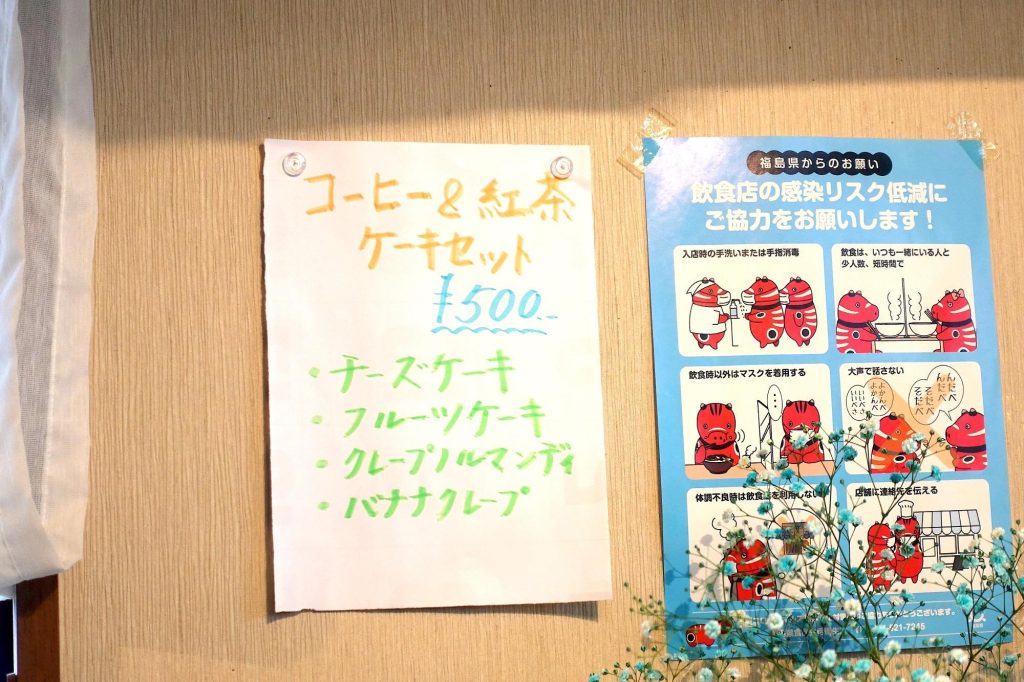 コーヒー&紅茶
ケーキセット
¥500.-
・チーズケーキ
・フルーツケーキ
・クレープノルマンディ
・バナナクレープ
福島県からのお願い
飲食店の感染リスク低減に
ご協力をお願いします!
入店時の手洗いまたは手指消毒
飲食は、いつも一緒にいる人と
少人数、短時間で
飲食時以外はマスクを着用する
大声で話さない
んだべ
そだべ
んだべ
そだべ
よかんべ
いいべさ
よかんべ
いいべさ
体調不良時は飲食店を利用しない
店舗に連絡先を伝える
うございます。
521-7245